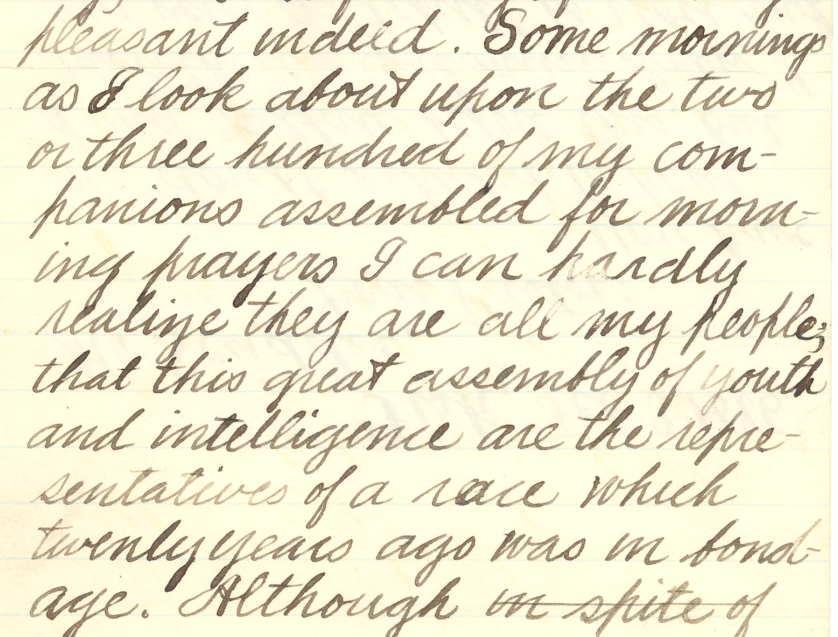 pleasant indeed. Some mornings
as I look about upon the two
or three hundred of my com-
panions assembled for morn-
ing prayers I can hardly
realize they are all my people;
that this great assembly of youth
and intelligence are the repre-
sentatives of a race which
twenty years ago was in bond-
age. Although in spite of